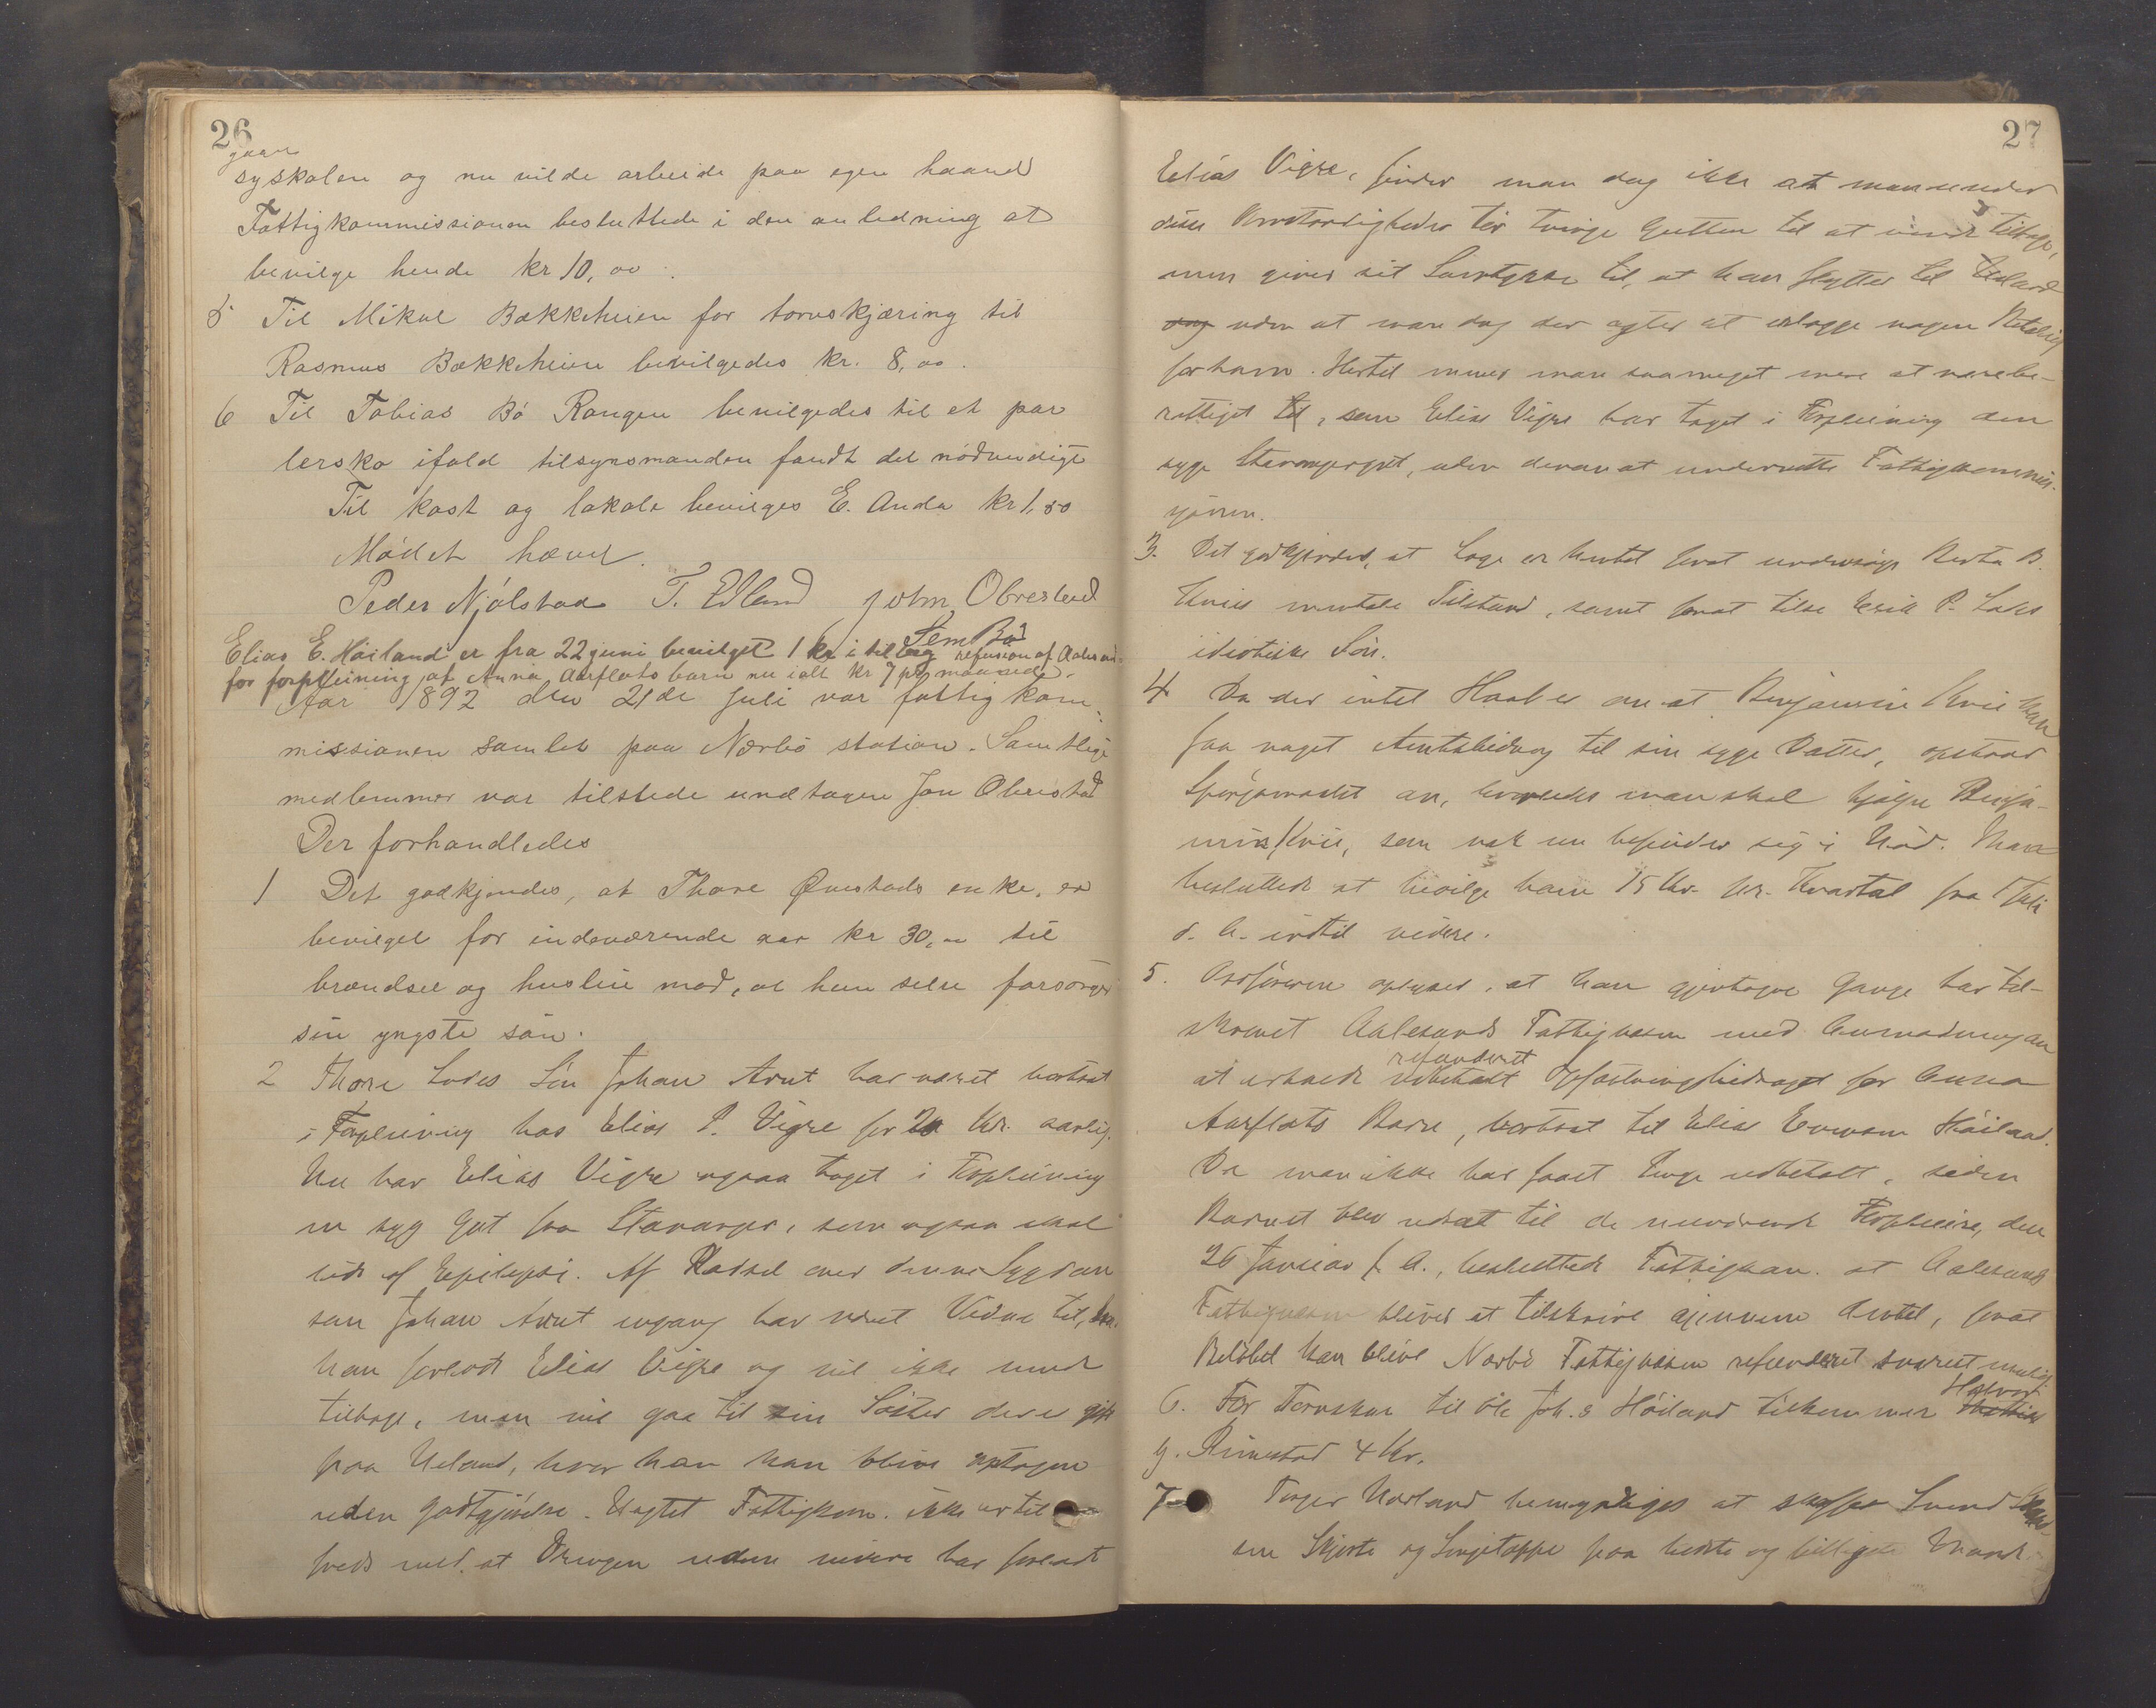 26
gaar
syskolen og nu vilde arbeide paa egen haand
Fattigkommissionen besluttede i den anledning at
bevilge hende kr 10,00.
5 Til Mikal Bækkeheien for torvskjæring til
Rasmus Bækkeheien bevilgedes kr. 8,00.
6 Til Tobias Bø Rangen bevilgedes til et par
lersko ifald tilsynsmanden fandt det nödvendigt
Til kost og lokale bevilges E. Anda kr 1,80
Mödet hævet.
Peder Njølstad T. Edland John Obrestad
Sem Bø
Elias E. Höiland er fra 22 juni bevilget 1 kr i tillæg refusion af Aalesund
for forpleining af Anna Aarflots barn nu ialt kr 7 pr maaned.
Aar 1892 den 21de juli var fattigkom-
missionen samlet paa Nærbö station. Samtlige
medlemmer var tilstede undtagen Jon Obrestad
Der forhandledes
1 Det godkjendes, at Thore Øvestads enke, er
bevilget for indeværende aar kr 30,00 til
brændsel og husleie mod, at hun selv forsörger
sin yngste sön.
2 Thore Lodes Sön Johan Arnt har været bortsat
i Forpleining hos Elias P. Vigre for 20 Kr. aarlig.
Nu har Elias Vigre ogsaa taget i Forpleining
en syg Gut fra Stavanger, som ogsaa skal
lide af Epilepsi. Af Rædsel over denne Sygdom
som Johan Arnt engang har været Vidne til, har
han forladt Elias Vigre og vil ikke vende
tilbage, men vil gaa til sin Söster der er gift
paa Ueland, hvor han kan blive optagen
uden Godtgjörelse. Uagtet Fattigkom. ikke er til-
freds med, at Drengen uden videre har forladt
27
Elias Vigre, finder man dog ikke at man under
disse Omstændigheder tör tvinge Gutten til at vende tilbage,
men giver sit Samtykke til, at han flytter til Ueland
uden at man dog der agter at erlægge nogen Betaling
for ham. Hertil mener man saameget mere at være be-
rettiget til, som Elias Vigre har taget i Forpleining den
syge Stavangergut, uden derom at underrette Fattigkommis-
sjonen.
3. Det godkjendes, at Læge er hentet forat undersöge Berta B.
Kvies mentale Tilstand, samt forat tilse Erik P. Lodes
idiotiske Sön.
4 Da der intet Haab er om at Benjamin Kvie kan
faa noget Amtsbidrag til sin syge Datter, opstaar
Spörgsmaalet om, hvorledes man skal hjælpe Benja-
min Kvie, som nok nu befinder sig i Nöd. Man
besluttede at bevilge ham 15 Kr. pr. Kvartal fra 1 Juli
d. A. indtil videre.
5. Ordföreren oplyser, at han gjentagne Gange har til-
skrevet Aalesunds Fattigvæsen med Anmodning om
at erholde refunderet udbetalt Opfostringsbidraget for Anna
Aarflots Barn, bortsat til Elias Enevson Höiland.
Da man ikke har faaet Penge udbetalt, siden
Barnet blev udsat til de nuværende Forpleiere, den
26 Januar f. A., besluttede Fattigkom. at Aalesunds
Fattigvæsen bliver at tilskrive gjennem Amtet, forat
Belöbet kan blive Nærbö Fattigvæsen refunderet snarest mulig
6. For Torvskur til Ole Joh.s Höiland tilkommer Halvor
G. Rimestad 4 Kr.
7 Torger Norland bemyndiges at skaffe Svend
en Skjorte og Sengetæppe paa bedste og billigste Maade